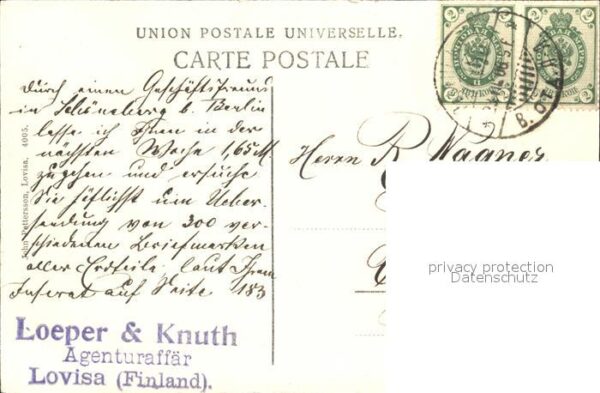 UNION POSTALE UNIVERSELLE.
CARTE POSTALE
Durch einen Geschäftsfreund
in Schöneberg b. Berlin
lasse ich Ihnen in der
nächsten Woche 1,65 M
zugehen und ersuche
Sie höflichst um Ueber-
sendung von 300 ver-
schiedenen Briefmarken
aller Erdteile, laut Ihrem
Inserat auf Seite 183
Herrn R. Wagner
John Pettersson, Lovisa. 4005.
Loeper & Knuth
Agenturaffär
Lovisa (Finland).
privacy protection
Datenschutz
2 2
2 2